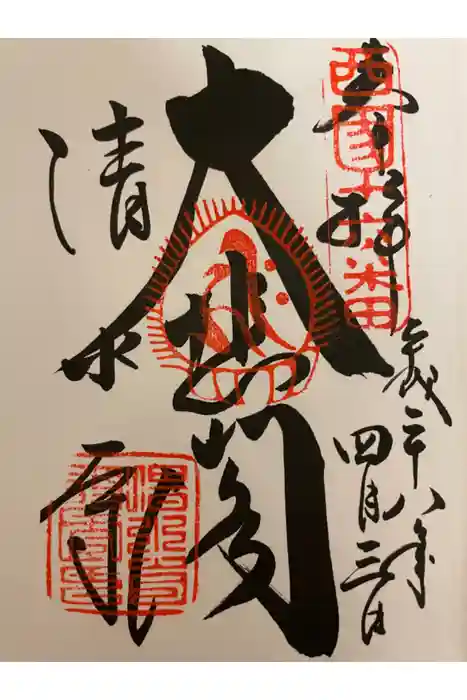 西國十六番
奉拝
平成二十八年
四月三日
大悲閣
清水寺